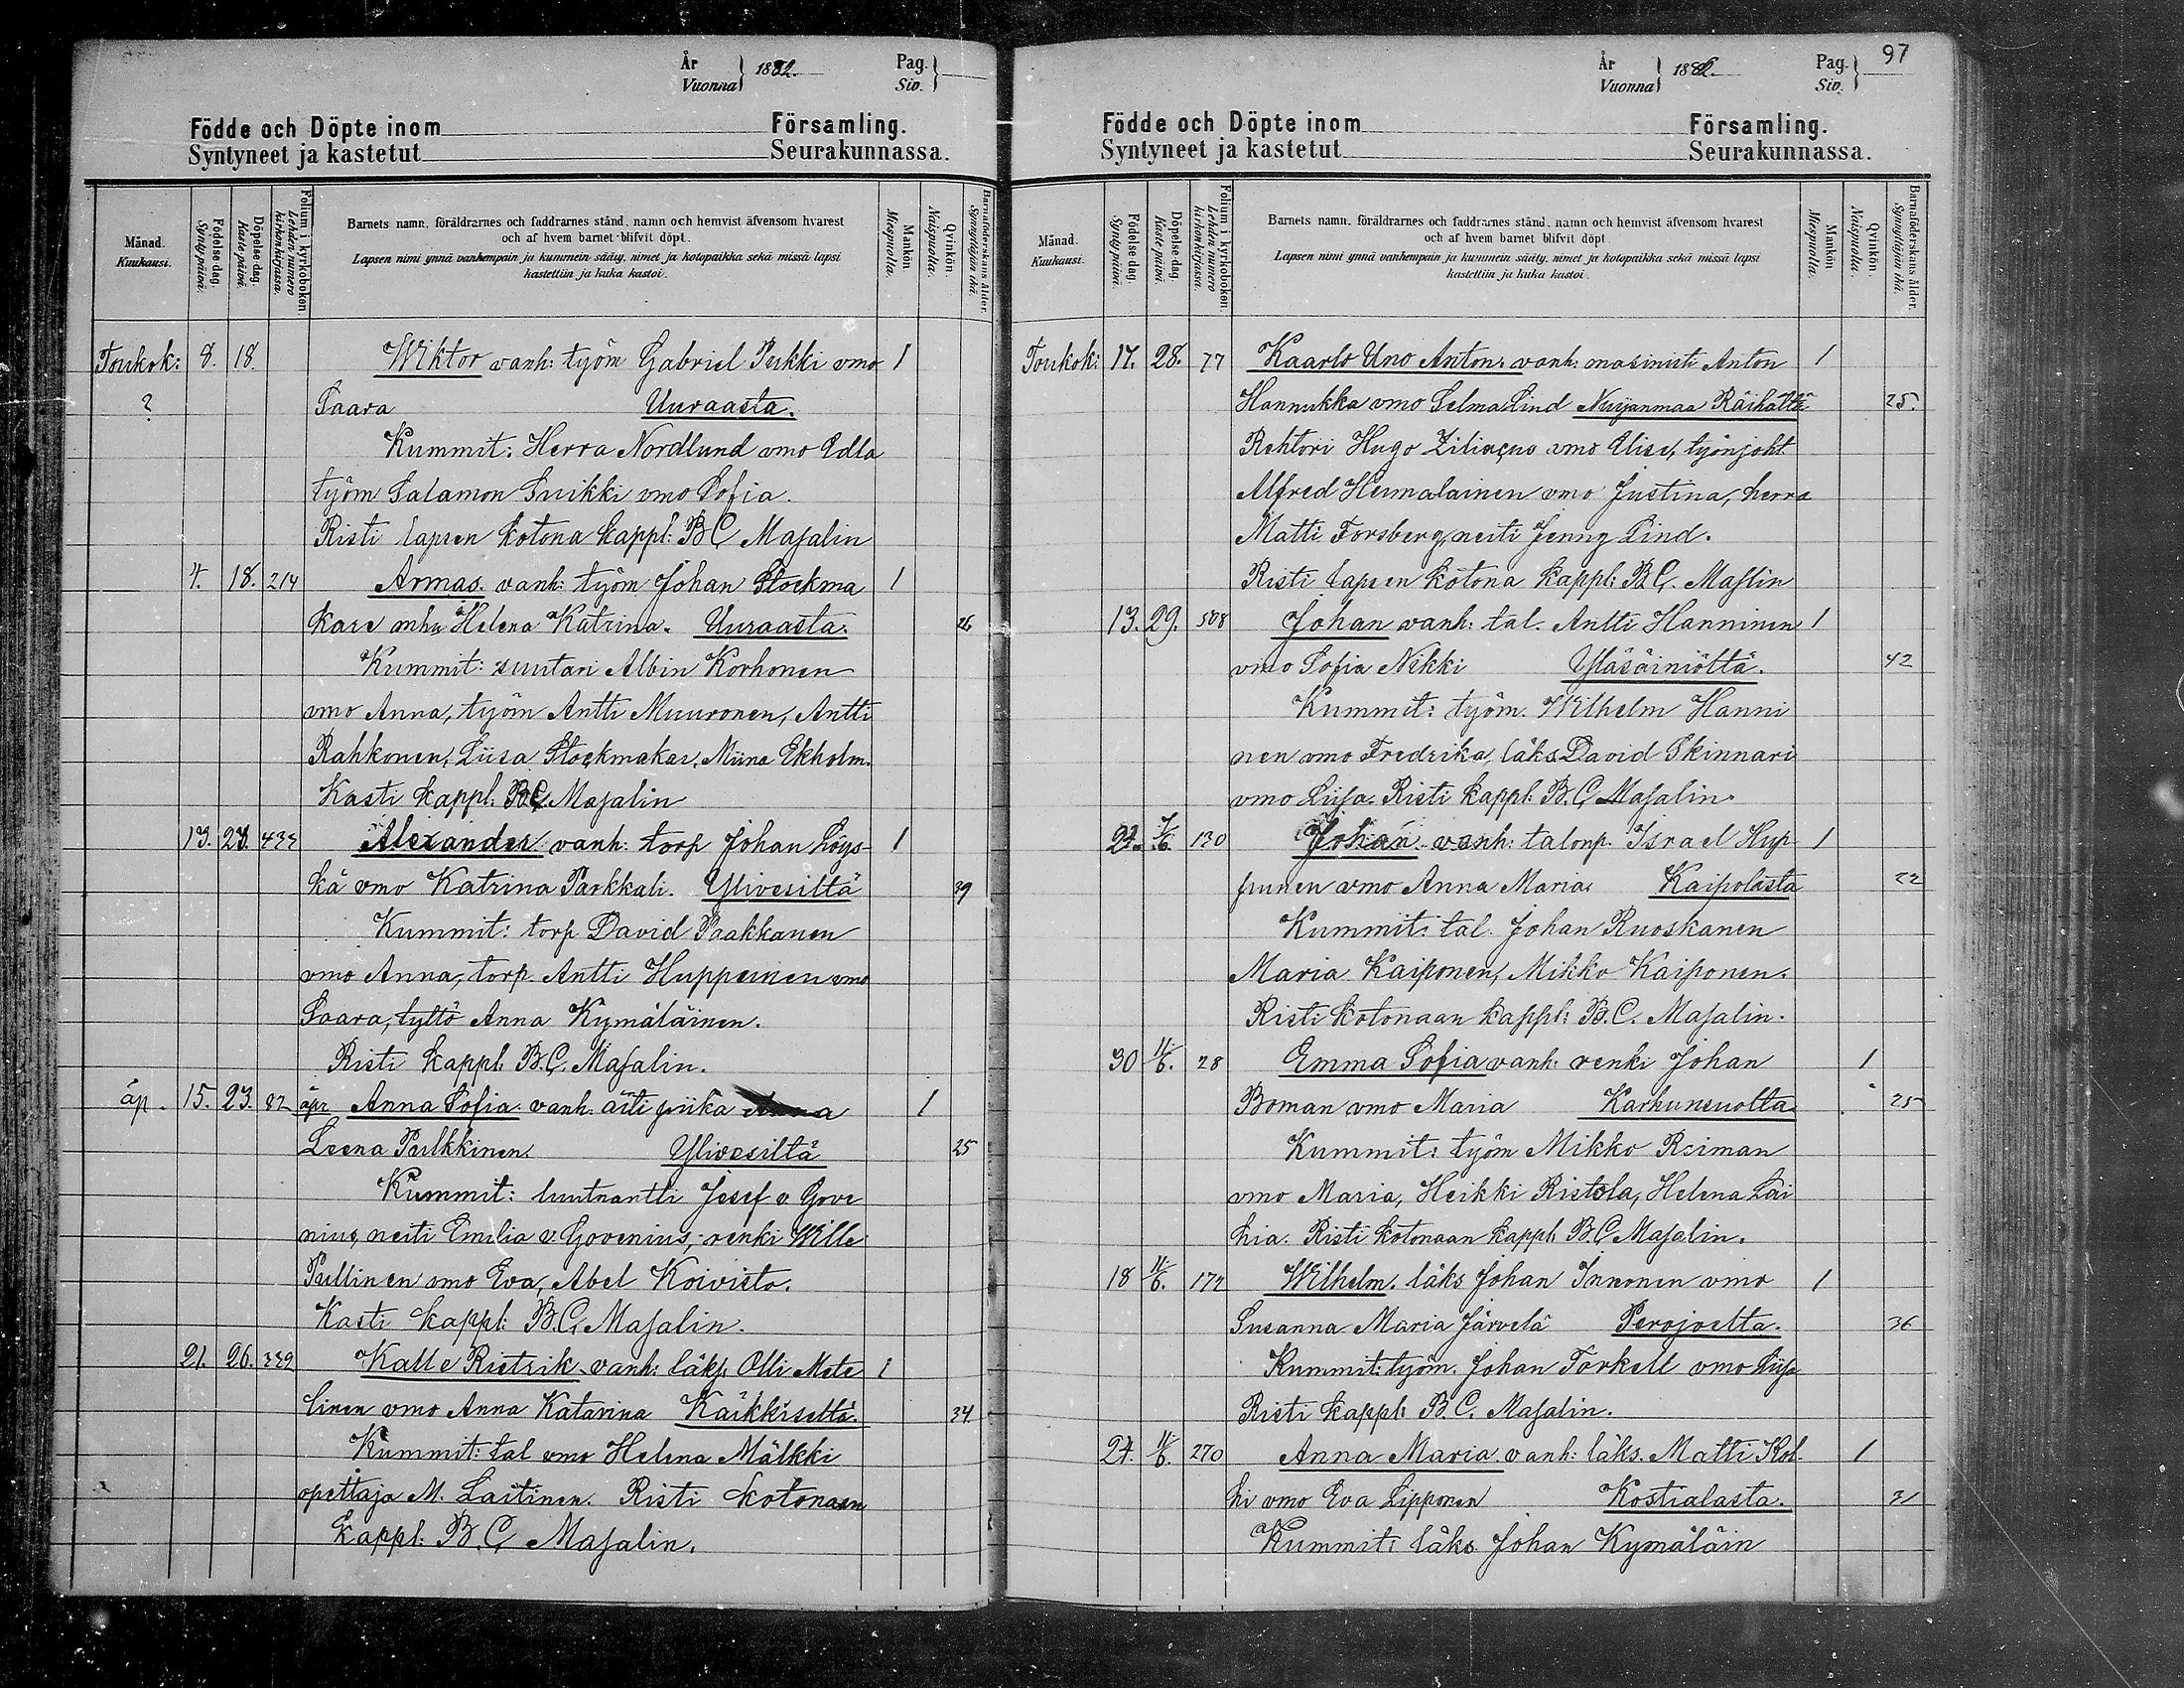 År
Vuonna } 1882.
Pag.
Siv. }
Födde och Döpte inom Församling.
Syntyneet ja kastetut Seurakunnassa.
Månad.
Kuukausi.
Födelse dag.
Syntypäivä.
Döpelse dag.
Kaste päivä.
Folium i kyrkoboken.
Lehden numero kirkonkirjassa.
Barnets namn, föräldrarnes och faddrarnes stånd, namn och hemvist äfvensom hvarest
och af hvem barnet blifvit döpt.
Lapsen nimi ynnä vanhempain ja kummein sääty, nimet ja kotopaikka sekä missä lapsi
kastettiin ja kuka kastoi.
Mankön.
Miespuolia.
Qvinkön.
Naispuolia.
Barnaföderskans ålder.
Synnyttäjän ikä.
Toukok: 8. 18. Wiktor vanh: työm Gabriel Pukki vmo 1
? Saara Uuraasta.
Kummit: Herra Nordlund vmo Edla
työm Salamon Suikki vmo Sofia.
Risti lapsen kotona kappl: B C Masalin
4. 18. 214 Armas. vanh: työm Johan Stockma 1
kare Helena Katrina. Uuraasta. 26
Kummit: suutari Albin Korhonen
vmo Anna, työm Antti Muuronen, Antti
Rahkonen, Liisa Stockmakar, Miina Ekholm.
Kasti kappl: B.C. Masalin
13. 28. 435 Alexander vanh: torp Johan Löys- 1
kä vmo Katrina Parkkali. Ylivesiltä 39
Kummit: torp David Paakkanen
vmo Anna, torp. Antti Huppoinen vmo
Saara, tyttö Anna Kymäläinen.
Risti kappl: B.C. Masalin.
äp. 15. 23. 82 äpr Anna Sofia vanh. äiti piika 1
Leena Pulkkinen Ylivesiltä 25
Kummit: luutnantti Josef v Gove
nius, neiti Emilia v. Govenius, renki Wille
Pullinen vmo Eva, Abel Koivisto.
Kasti kappl: B.C. Masalin.
21. 26. 339 Kalle Rietrik vanh: läks Olli Mete 1
linen vmo Anna Katarina Käikkiseltä. 34
Kummit: tal vmo Helena Mälkki
opettaja M. Laitinen. Risti kotonaan
kappl: B.C. Masalin.
År
Vuonna } 1882.
Pag.
Siv. } 97
Födde och Döpte inom Församling.
Syntyneet ja kastetut Seurakunnassa.
Månad.
Kuukausi.
Födelse dag.
Syntypäivä.
Döpelse dag.
Kaste päivä.
Folium i kyrkoboken.
Lehden numero kirkonkirjassa.
Barnets namn, föräldrarnes och faddrarnes stånd, namn och hemvist äfvensom hvarest
och af hvem barnet blifvit döpt.
Lapsen nimi ynnä vanhempain ja kummein sääty, nimet ja kotopaikka sekä missä lapsi
kastettiin ja kuka kastoi.
Mankön.
Miespuolia.
Qvinkön.
Naispuolia.
Barnaföderskans ålder.
Synnyttäjän ikä.
Toukok: 17. 28. 77 Kaarlo Uno Anton. vanh: masinisti Anton 1
Hannukka vmo Selma Lind Nuijanmaa Räihältä 25.
Rehtori Hugo Ziliacus vmo Elise, työnjoht
Alfred Heimalainen vmo Justina, herra
Matti Forsberg, neiti Jenny Lind.
Risti lapsen kotona kappl: B.C. Maslin
13. 29. 508 Johan vanh: tal. Antti Hanninen 1
vmo Sofia Nikki Yläsäiniöltä. 42
Kummit: työm. Wilhelm Hanni
nen vmo Fredrika, läks David Skinnari
vmo Liisa. Risti kappl: B.C Masalin.
22. 4/6. 130 Johan vanh: talonp. Israel Hyp 1
pinen vmo Anna Maria Kaipolasta 22
Kummit: tal. Johan Ruoskanen
Maria Kaiponen, Mikko Kaiponen.
Risti kotonaan kappl: B.C. Masalin.
30 11/6. 28 Emma Sofia vanh: renki Johan 1
Boman vmo Maria Karhunsuolta 25
Kummit: työm Mikko Reiman
vmo Maria, Heikki Ristola, Helena Lai
hia. Risti kotonaan kappl B.C Masalin.
18 11/6. 172 Wilhelm. läks Johan Innonen vmo 1
Susanna Maria Järvelä Perojoelta. 36
Kummit: työm. Johan Torkell vmo Liisa
Risti kappl: B.C. Masalin.
24. 11/6. 270 Anna Maria vanh: läks. Matti Kol- 1
hi vmo Eva Lipponen Kostialasta. 31
Kummit: läks. Johan Kymäläin